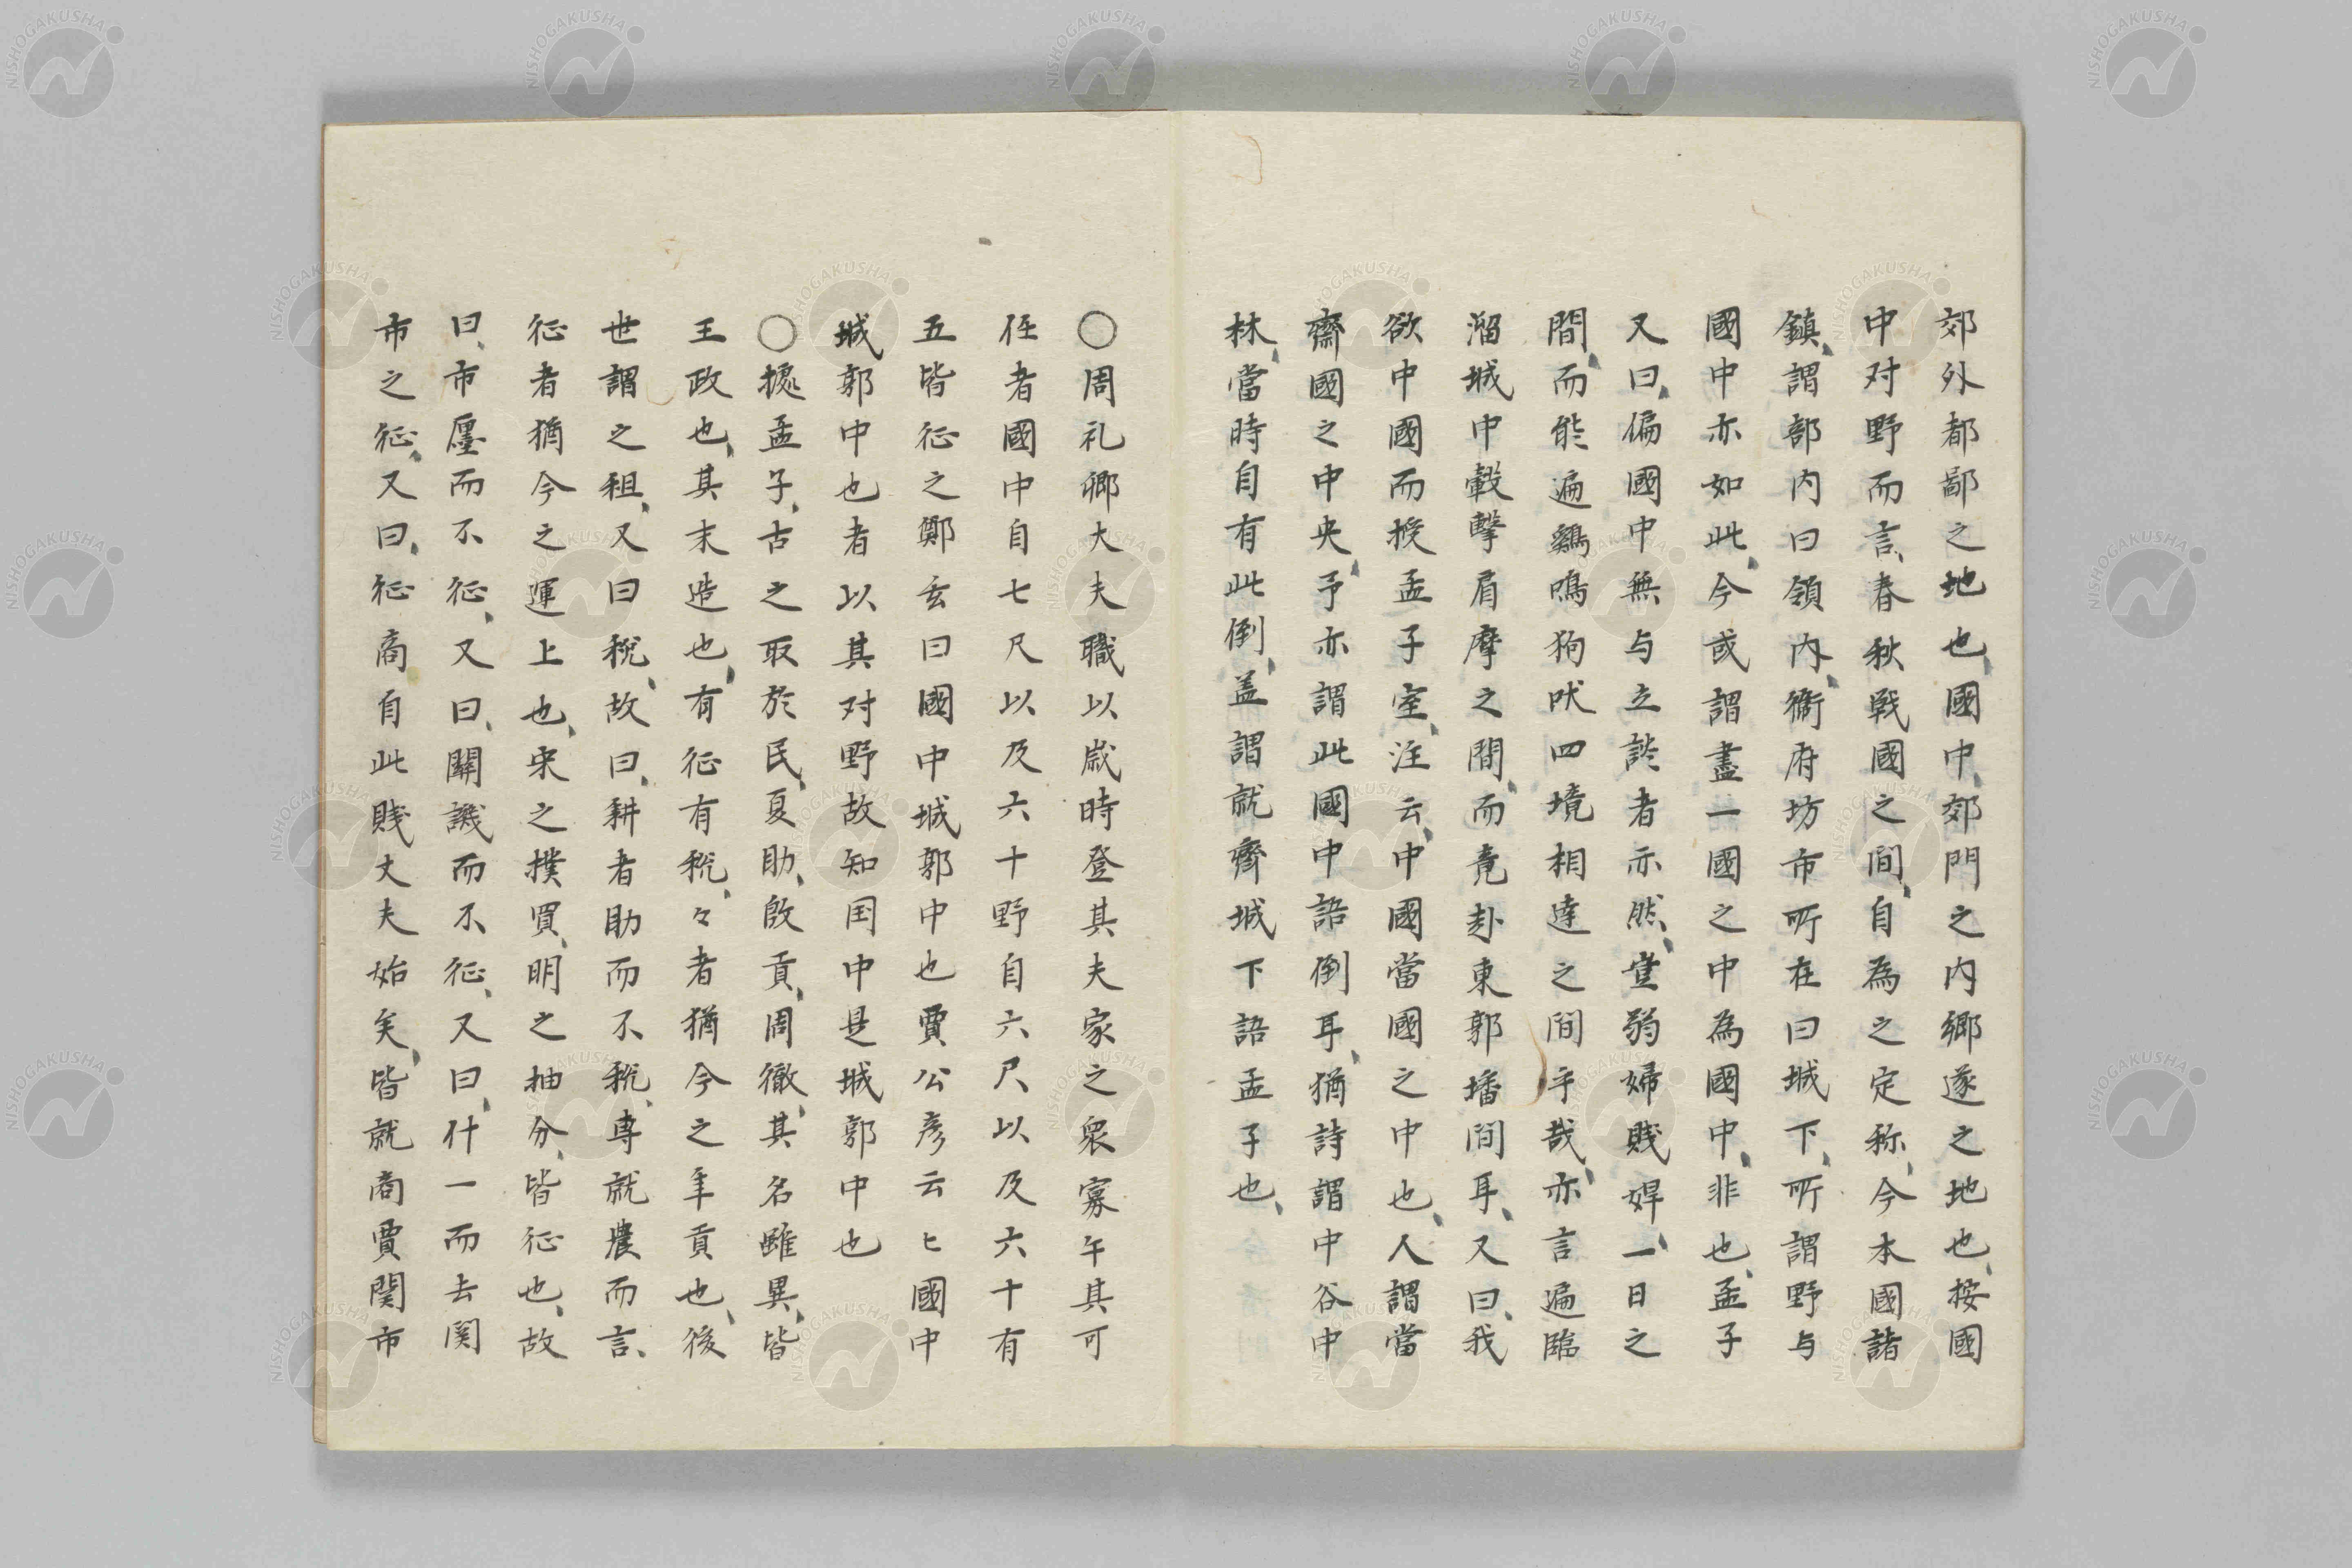 郊外都鄙之地也、國中、郊門之内郷遂之地也、按國
中对野而言、春秋戰國之間、自為之定称、今本國諸
鎮、謂部内曰領内、衛府坊市所在曰城下、所謂野与
國中亦如此、今或謂盡一國之中為國中、非也、孟子
又曰、偏國中無与立談者亦然、豈弱婦賤婢、一日之
間、而能遍鷄鳴狗吠四境相達之間乎哉、亦言遍臨
溜城中轂擊肩摩之間、而竟赴東郭墦間耳、又曰、我
欲中國而授孟子室、注云、中國當國之中也、人謂當
齋國之中央、予亦謂此國中語倒耳、猶詩謂中谷中
林、當時自有此倒、盖謂就齊城下語孟子也、
〇周礼郷大夫職以歳時登其夫家之衆寡午其可
任者國中自七尺以及六十野自六尺以及六十有
五皆征之鄭玄曰國中城郭中也賈公彦云七國中
城郭中也者以其对野故知国中是城郭中也
〇據孟子、古之取於民、夏助、啟貢、周徹、其名雖異、皆
王政也、其末造也、有征有稅、々者猶今之年貢也、後
世謂之租、又曰稅、故曰、耕者助而不稅、専就農而言、
征者猶今之運上也、宋之撲買、明之抽分、皆征也、故
曰、市廛而不征、又曰、關譏而不征、又曰、什一而去関
市之征、又曰、征商自此賤丈夫始矣、皆就商賈関市